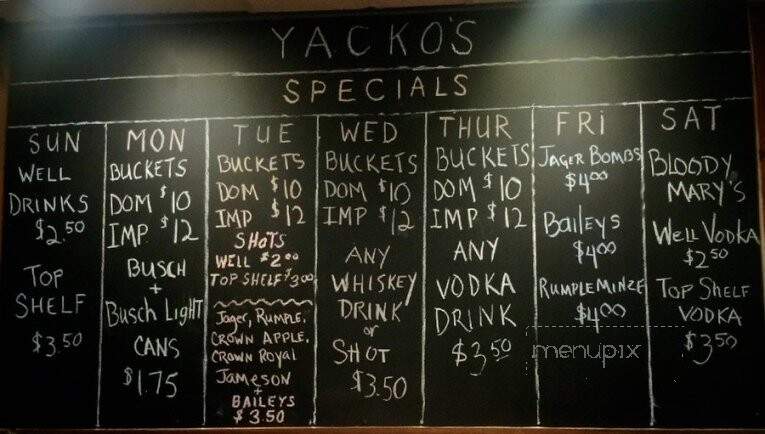 YACKO'S
SPECIALS
SUN
WELL
DRINKS
$2.50
TOP
SHELF
$3.50
MON
BUCKETS
DOM $10
IMP $12
BUSCH
+
Busch Light
CANS
$1.75
TUE
BUCKETS
DOM $10
IMP $12
SHOTS
WELL $2.00
TOP SHELF $3.00
Jager, RUMPLE,
CROWN APPLE,
CROWN Royal
JAMESON
+
BAILEYS
$3.50
WED
BUCKETS
DOM $10
IMP $12
ANY
WHISKEY
DRINK
or
SHOT
$3.50
THUR
BUCKETS
DOM $10
IMP $12
ANY
VODKA
DRINK
$3.50
FRi
JAGER BOMBS
$4.00
BAILEYS
$4.00
RUMPLEMINZE
$4.00
SAT
BLOODY
MARY'S
WELL VODKA
$2.50
TOP SHELF
VODKA
$3.50
menupix